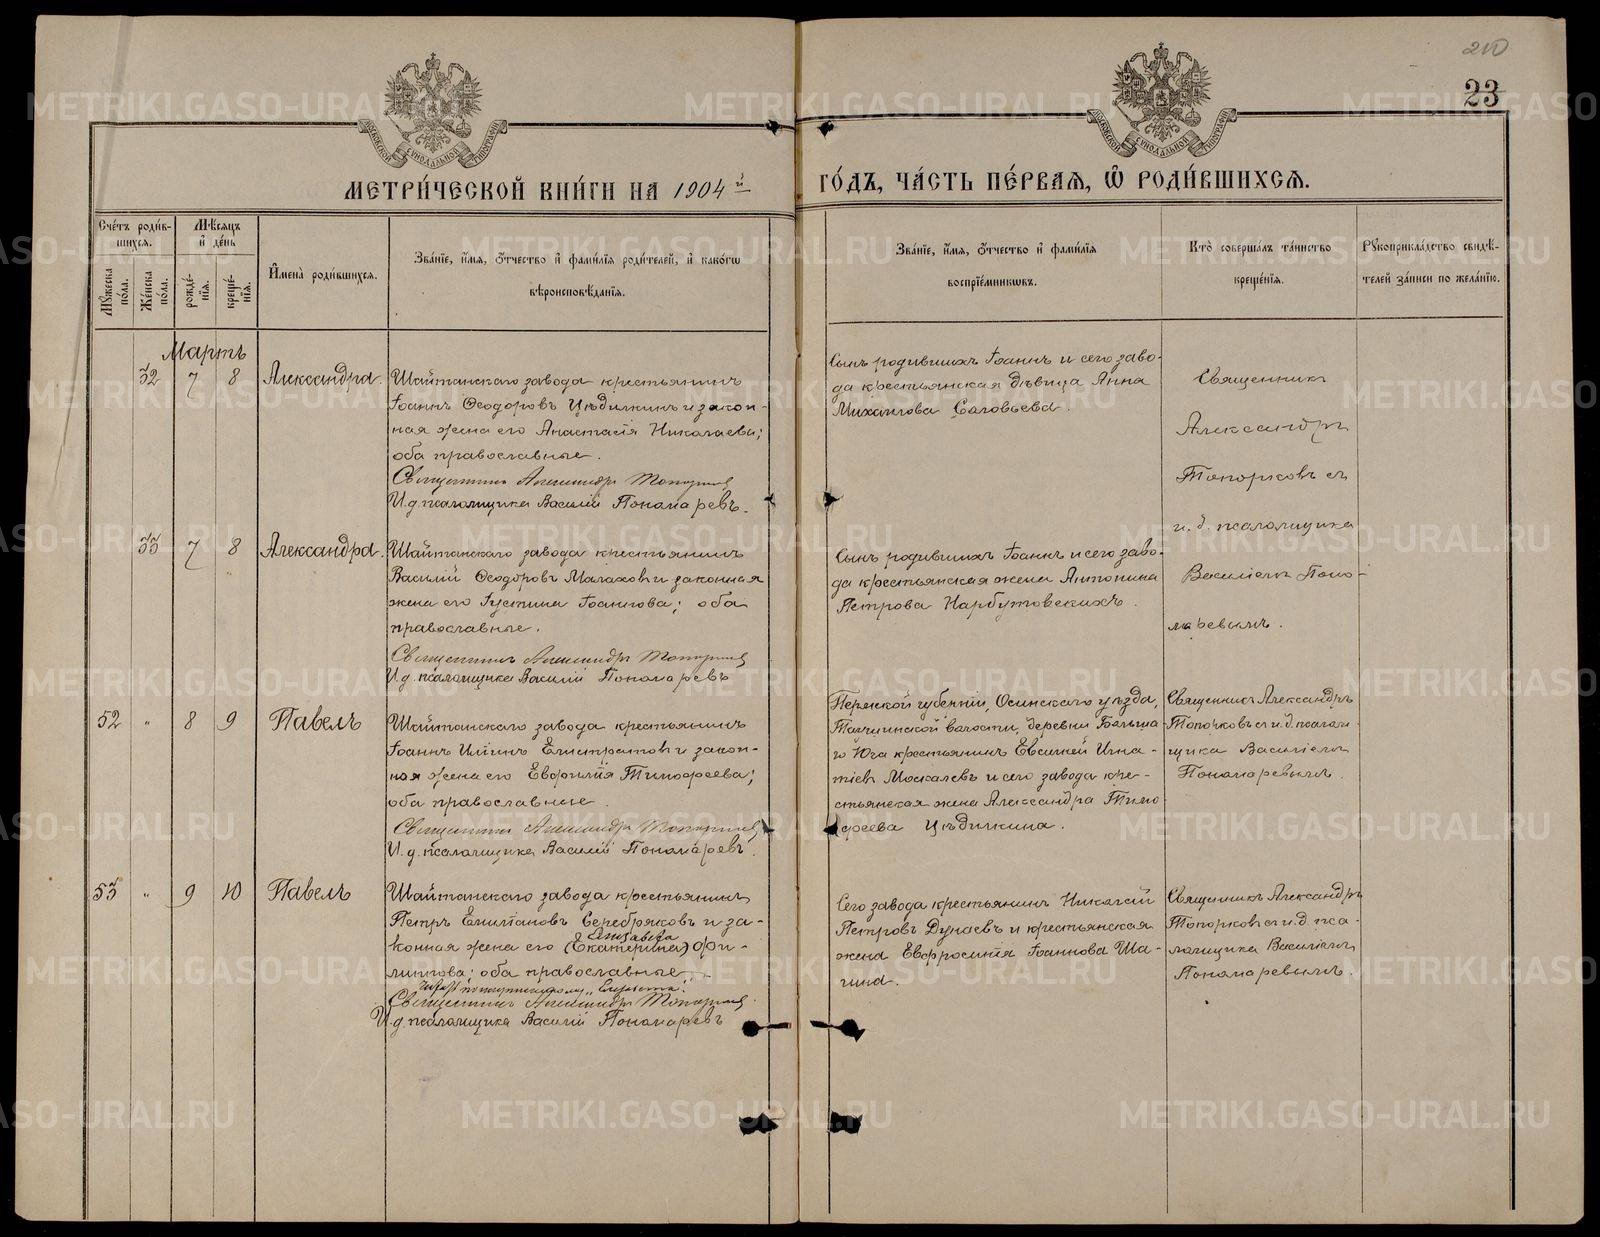 210
23
МОСКОВСКОЙ СѴНОДАЛЬНОЙ ТИПОГРАФІИ
МОСКОВСКОЙ СѴНОДАЛЬНОЙ ТИПОГРАФІИ
МЕТРИ́ЧЕСКОЙ КНИ́ГИ НА 1904 й
ГО́ДЪ, ЧА́СТЬ ПЕ́РВАѦ, Ѡ҆ РОДИ́ВШИХСѦ.
Сче́тъ роди́в-
шихсѧ.
Мѣ́сѧцъ
и҆ де́нь
Мꙋ́жеска по́ла.
Же́нска по́ла.
рожде́-нїѧ.
креще́-нїѧ.
И҆мена̀ роди́вшихсѧ.
Зва́нїе, и҆́мѧ, о҆́тчество и҆ фами́лїѧ роди́телей, и҆ како́гѡ
вѣроисповѣ́данїѧ.
Зва́нїе, и҆́мѧ, о҆́тчество и҆ фами́лїѧ
воспрїе́мникѡвъ.
Кто̀ соверша́лъ та́инство
креще́нїѧ.
Рꙋкоприкла́дство свидѣ́-
телей за́писи по жела́нїю.
Мартъ
32 7 8 Александра.
Шайтанскаго завода крестьянинъ
Іоаннъ Ѳеодоровъ Цѣдилкинъ и закон-
ная жена его Анастасія Николаева;
оба православные.
Священникъ Александръ Топорковъ
И.д. псаломщика Василій Пономаревъ.
Сынъ родившихъ Іоаннъ и сего заво-
да крестьянская дѣвица Анна
Михаилова Соловьева.
Священникъ
Александръ
Топорковъ съ
и.д. псаломщика
Василіемъ Поно-
маревымъ.
33 7 8 Александра.
Шайтанскаго завода крестьянинъ
Василій Ѳеодоровъ Малахов и законная
жена его Іустина Іоаннова; оба
православные.
Священникъ Александръ Топорковъ
И.д. псаломщика Василій Пономаревъ
Сынъ родившихъ Іоаннъ и сего заво-
да крестьянская жена Антонина
Петрова Нарбутовскихъ.
52 " 8 9 Павелъ
Шайтанскаго завода крестьянинъ
Іоаннъ Илiинъ Епистратов и закон-
ная жена его Евфимія Тимофеева;
оба православные.
Священникъ Александръ Топорковъ
И.д. псаломщика Василій Пономаревъ.
Пермской губерніи, Осинскаго уѣзда,
волости, деревни Больша-
го Юга крестьянинъ Евсигней Игна-
тіев Москалевъ и сего завода кре-
стьянская жена Александра Тимо
феева Цѣдилкина.
Священникъ Александръ
Топорковъ съ и.д. псалом-
щика Василіемъ
Пономаревымъ.
53 " 9 10 Павелъ
Шайтанскаго завода крестьянинъ
Петръ Емиліановъ Серебряковъ и за-
Елисавета
конная жена его (Екатерина) Фи-
липпова; оба православные.
"Елисавета".
Священникъ Александръ Топорковъ
И.д. псаломщика Василій Пономаревъ
Сего завода крестьянинъ Николай
Петровъ Дунаевъ и крестьянская
жена Евфросинія Іоаннова Ша-
гина.
Священникъ Александръ
Топорковъ съ и.д. пса-
ломщика Василіемъ
Пономаревымъ.
METRIKI.GASO-URAL.RU